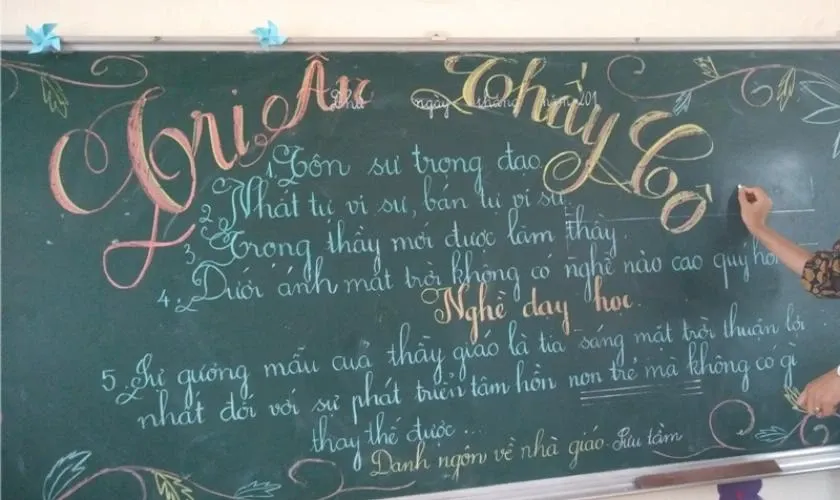 Tri Ân Thầy Cô
Thứ ngày tháng năm 201
1. Tôn sư trọng đạo
2. Nhất tự vi sư, bán tự vi sư.
3. Trọng thầy mới được làm thầy
4. Dưới ánh mặt trời không có nghề nào cao quý hơn
Nghề dạy học.
5. Sự gương mẫu của thầy giáo là tia sáng mặt trời thuận lợi
nhất đối với sự phát triển tâm hồn non trẻ mà không có gì
thay thế được ...
Danh ngôn về nhà giáo. Sưu tầm